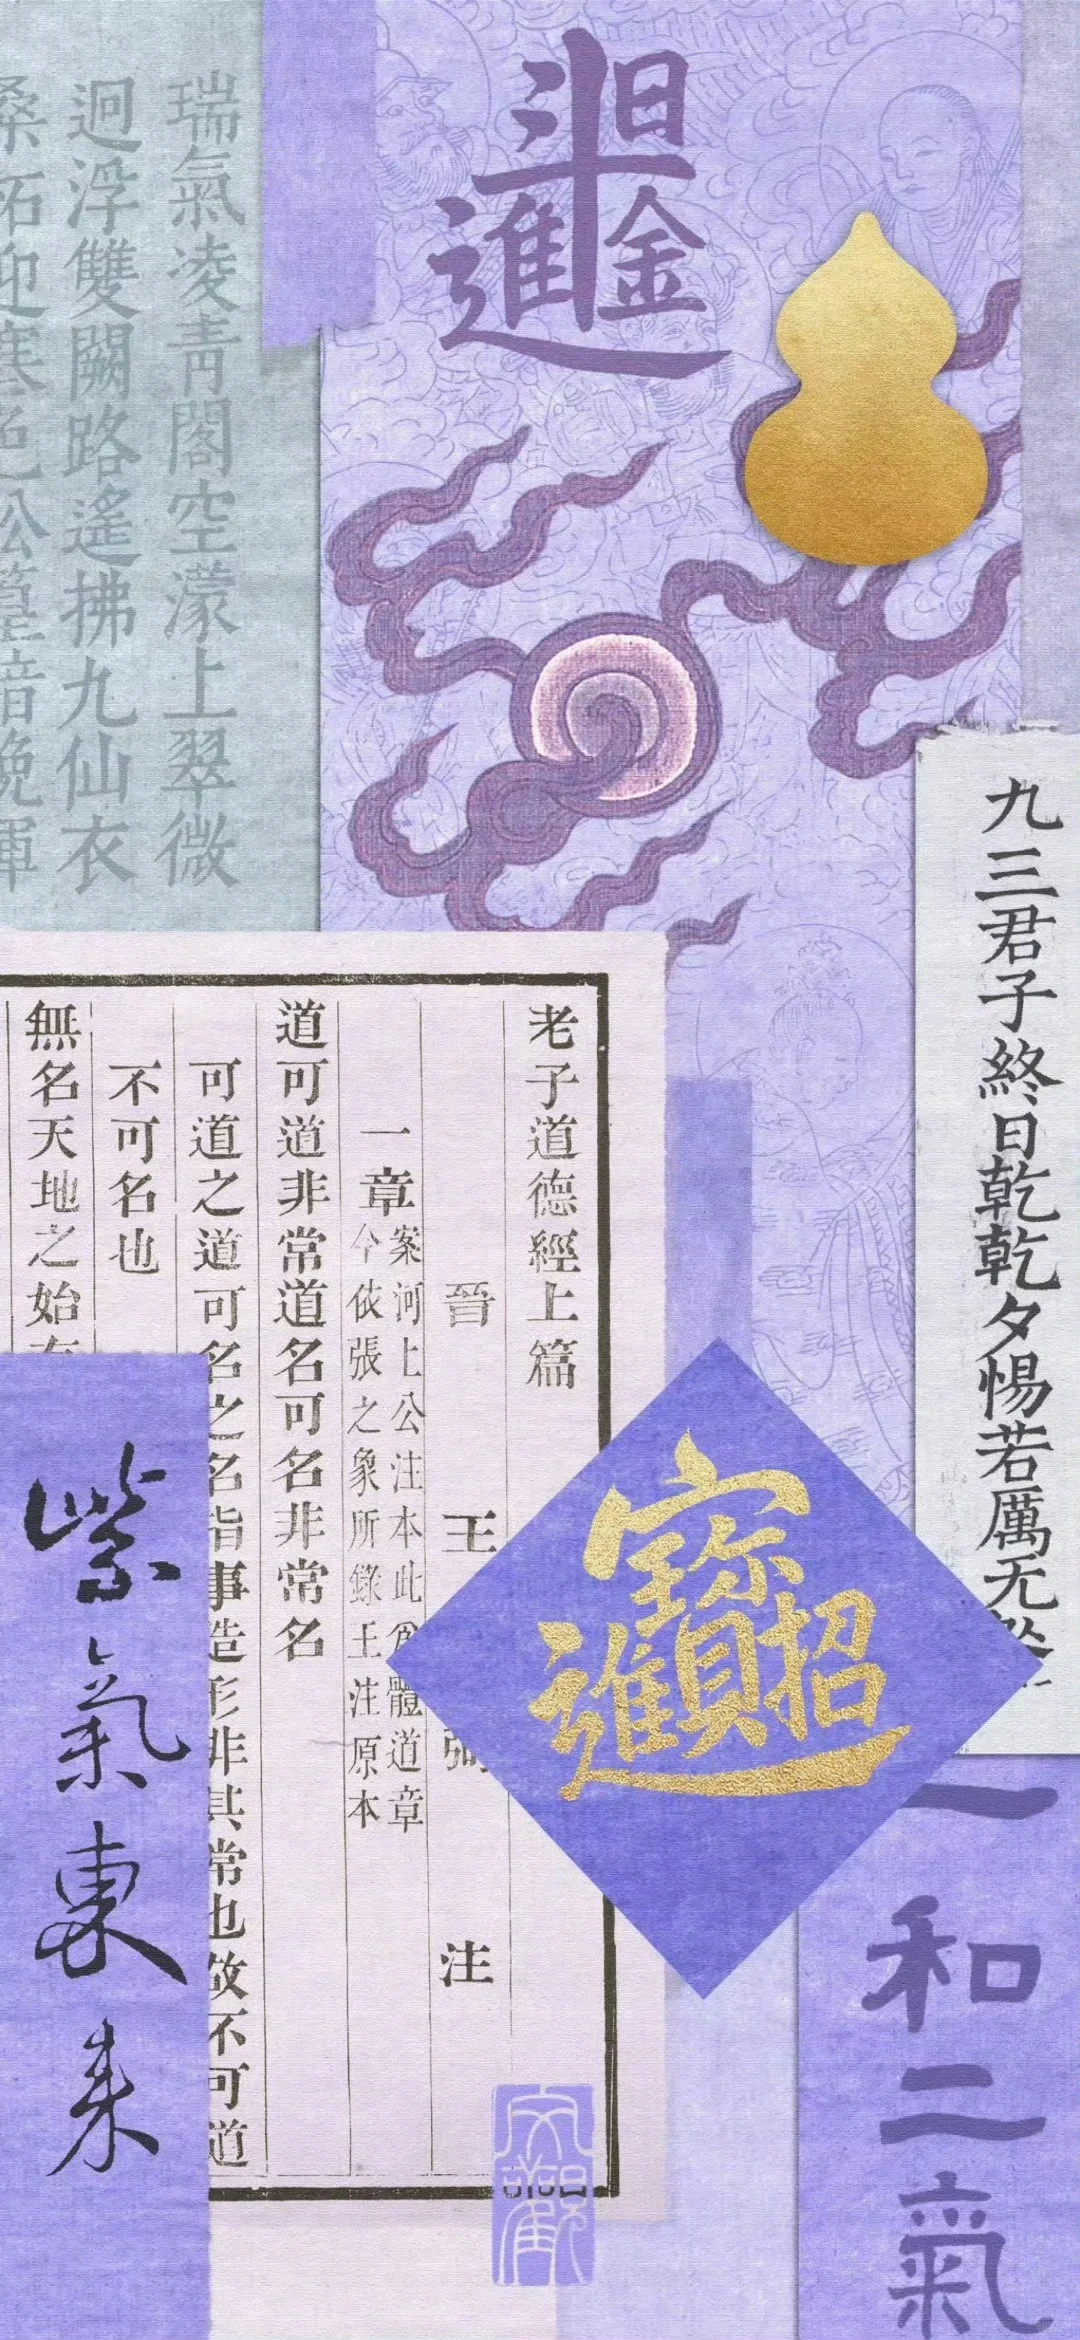 日進斗金
瑞氣凌青閣空濛上翠微
迴浮雙闕路遙拂九仙衣
桑柘迎寒色松篁暗晚暉
九三君子終日乾乾夕惕若厲无咎
老子道德經上篇
晉 王 弼 注
一章
案河上公注本此為體道章
今依張之象所錄王注原本
道可道非常道名可名非常名
可道之道可名之名指事造形非其常也故不可道
不可名也
無名天地之始有
招財進寶
紫氣東来
一和二氣